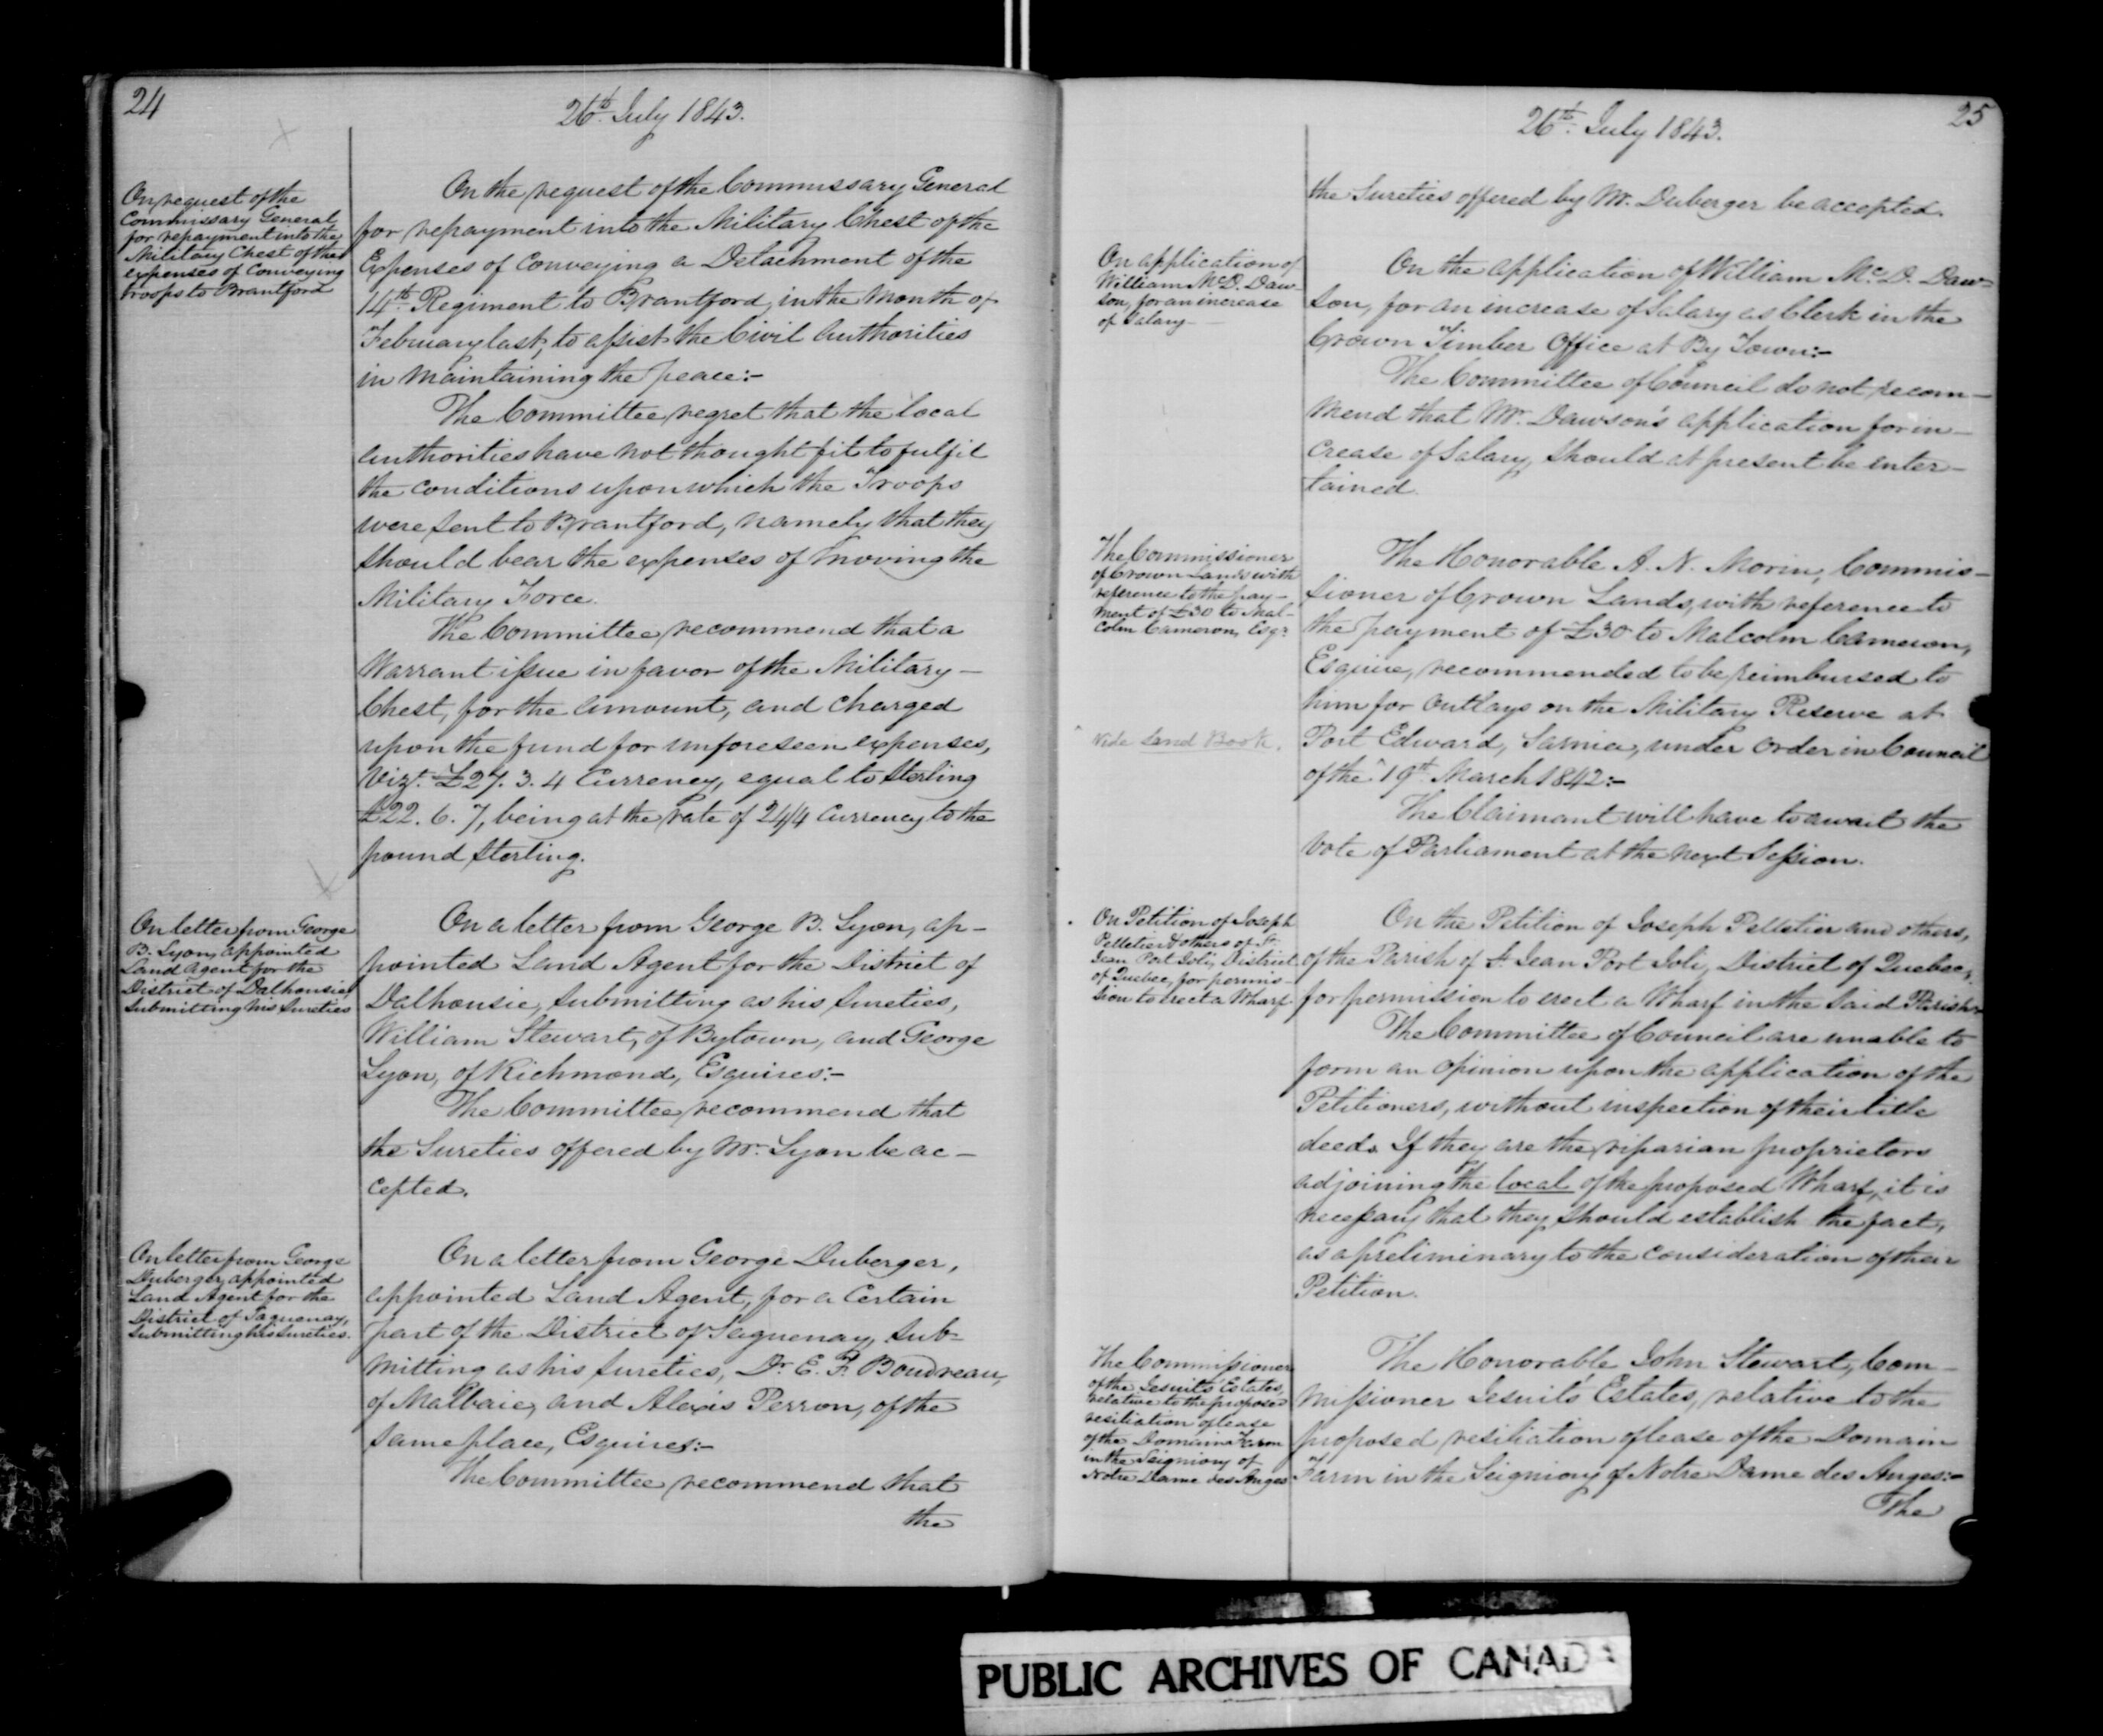 24
26th July 1843.
On request of the
Commissary General
for repayment into the
Military Chest of the
expenses of Conveying
troops to Brantford
On the request of the Commissary General
for repayment into the Military Chest of the
Expenses of Conveying a Detachment of the
14th Regiment to Brantford, in the Month of
February last, to assist the Civil Authorities
in Maintaining the peace:-
The Committee regret that the local
Authorities have not thought fit to fulfil
the conditions upon which the Troops
were sent to Brantford, namely that they
should bear the expenses of moving the
Military Force.
The Committee recommend that a
Warrant issue in favor of the Military-
Chest, for the amount, and charged
upon the fund for unforeseen expenses,
Vizt. £27. 3. 4 Currency, equal to Sterling
£22. 6. 7, being at the rate of 24/4 Currency to the
pound Sterling.
On letter from George
B. Lyon, appointed
Land Agent for the
District of Dalhousie
Submitting his Sureties
On a letter from George B. Lyon, ap-
pointed Land Agent for the District of
Dalhousie, submitting as his Sureties,
William Stewart, of Bytown, and George
Lyon, of Richmond, Esquires:-
The Committee recommend that
the Sureties offered by Mr. Lyon be ac-
cepted.
On letter from George
Duberger, appointed
Land Agent for the
District of Saguenay,
Submitting his Sureties.
On a letter from George Duberger,
appointed Land Agent, for a Certain
part of the District of Saguenay, sub-
mitting as his Sureties, Dr. E. F. Boudreau,
of Malbaie, and Alexis Perron, of the
same place, Esquires:-
The Committee recommend that
the
25
26th July 1843.
the Sureties offered by Mr. Duberger be accepted.
On application of
William McD. Daw-
son, for an increase
of Salary-
On the application of William McD. Daw-
son, for an increase of Salary as Clerk in the
Crown Timber Office at By Town:-
The Committee of Council do not recom-
mend that Mr. Dawson's application for in-
crease of Salary, should at present be enter-
tained.
The Commissioner
of Crown Lands with
reference to the pay-
ment of £30 to Mal-
colm Cameron, Esqr.
The Honorable A. N. Morin, Commis-
sioner of Crown Lands, with reference to
the payment of £30 to Malcolm Cameron,
Esquire, recommended to be reimbursed to
him for outlays on the Military Reserve at
Vide Land Book.
Port Edward, Sarnia, under Order in Council
of the 19th March 1842:-
The Claimant will have to await the
Vote of Parliament at the next Session.
On Petition of Joseph
Pelletier & others of St.
Jean Port Joli, District
of Quebec, for permis-
sion to erect a Wharf
On the Petition of Joseph Pelletier and others,
of the Parish of St. Jean Port Joli, District of Quebec,
for permission to erect a Wharf in the said Parish:-
The Committee of Council are unable to
form an opinion upon the application of the
Petitioners, without inspection of their title
deeds. If they are the riparian proprietors
adjoining the local of the proposed Wharf, it is
necessary that they should establish the fact,
as a preliminary to the consideration of their
Petition.
The Commissioner
of the Jesuits' Estates,
relative to the proposed
resiliation of lease
of the Domain Farm
in the Seigniory of
Notre Dame des Anges
The Honorable John Stewart, Com-
missioner Jesuits' Estates, relative to the
proposed resiliation of lease of the Domain
Farm in the Seigniory of Notre Dame des Anges:-
The
PUBLIC ARCHIVES OF CANADA